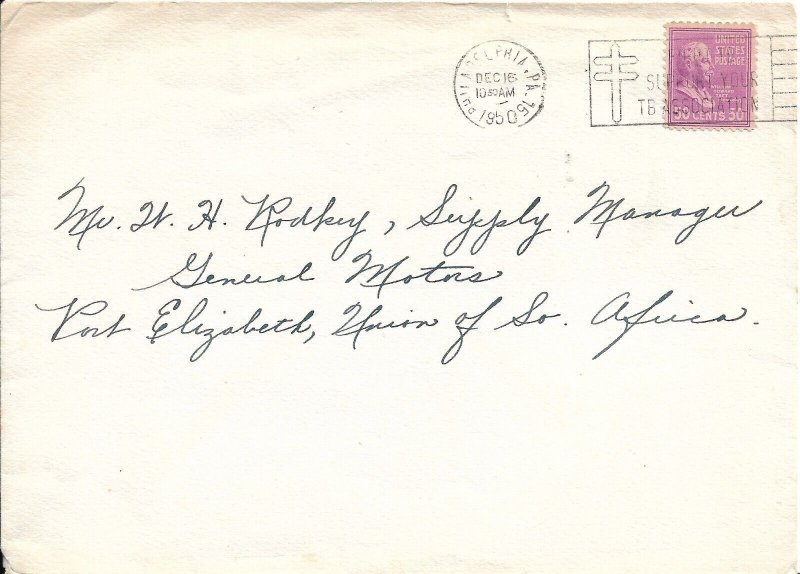 PHILADELPHIA, PA. 15
DEC 16
10 30 AM
1950
SUPPORT YOUR
TB ASSOCIATION
UNITED
STATES
POSTAGE
WILLIAM
HOWARD
TAFT
50 CENTS 50
Mr. W. H. Rodkey, Supply Manager
General Motors
Port Elizabeth, Union of So. Africa.